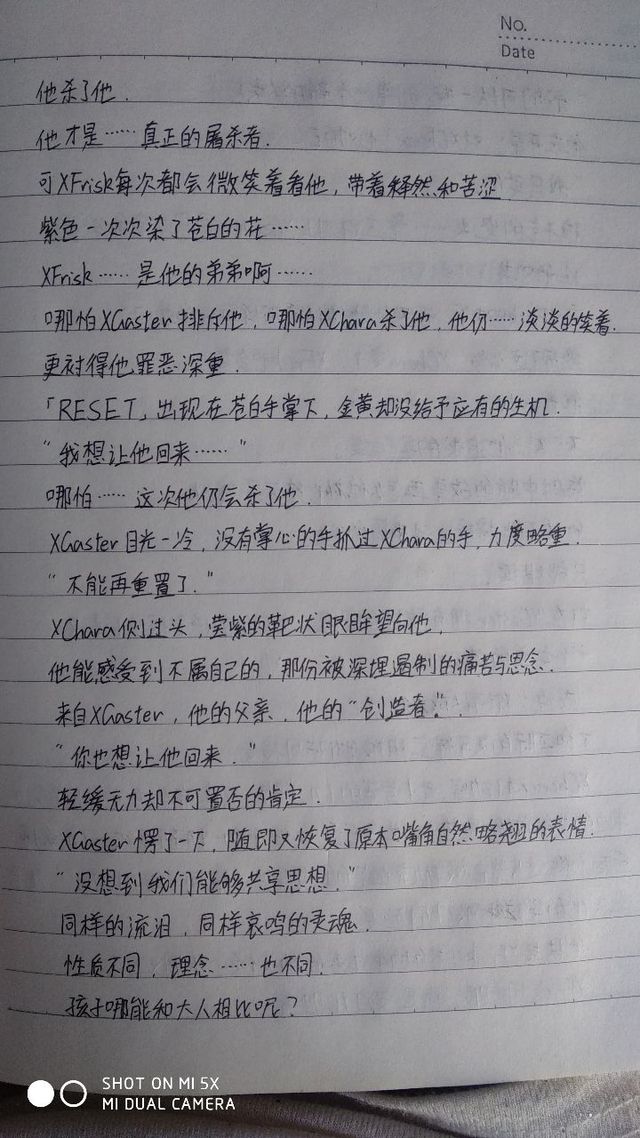 No.
Date
他杀了他.
他才是……真正的屠杀者.
可XFrisk每次都会微笑着看他,带着释然和苦涩
紫色一次次染了苍白的花……
XFrisk……是他的弟弟啊……
哪怕XGaster排斥他,哪怕XChara杀了他,他仍……淡淡的笑着.
更衬得他罪恶深重.
「RESET」出现在苍白手掌下,金黄却没给予应有的生机.
“我想让他回来……”
哪怕……这次他仍会杀了他.
XGaster目光一冷,没有掌心的手抓过XChara的手,力度略重.
“不能再重置了.”
XChara侧过头,莹紫的靶状眼眸望向他,
他能感受到不属自己的,那份被深埋遏制的痛苦与思念.
来自XGaster,他的父亲,他的“创造者”.
“你也想让他回来.”
轻缓无力却不可置否的肯定.
XGaster愣了一下,随即又恢复了原本嘴角自然略翘的表情.
“没想到我们能够共享思想.”
同样的流泪,同样哀鸣的灵魂.
性质不同,理念……也不同.
孩子哪能和大人相比呢?
SHOT ON MI 5X
MI DUAL CAMERA